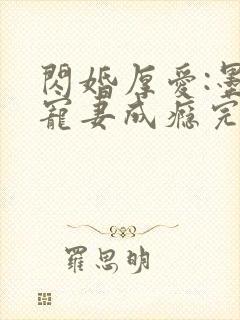 閃婚厚愛:墨
寵妻成癮完
羅思明